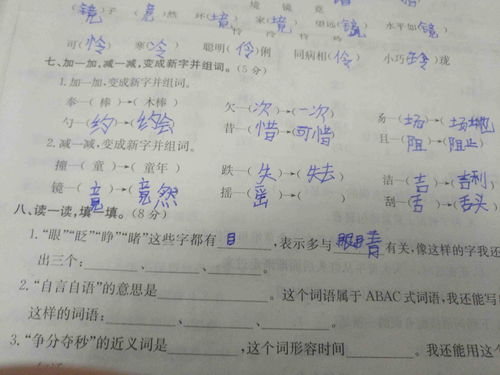 境 镜 竟
(镜)子 (竟)然 环(境) 家(境) 望远(镜) 水平如(镜)
怜 伶 玲
可(怜) 寒(冷) 聪明(伶)俐 同病相(伶) 小巧(玲)珑
七、加一加,减一减,变成新字并组词。(5分)
1.加一加,变成新字并组词。
奉—(棒)→(木棒) 欠—(次)→(一次) 昜—(场)→(场地)
勺—(约)→(约会) 昔—(惜)→(可惜) 且—(阻)→(阻止)
2.减一减,变成新字并组词。
撞—(童)→(童年) 跌—(失)→(失去) 洁—(吉)→(吉利)
镜—(竟)→(竟然) 摇—(䍃)→( ) 刮—(舌)→(舌头)
八、读一读,填一填。(8分)
1.“眼”“眨”“睁”“睹”这些字都有目,表示多与眼睛有关,像这样的字我还
出三个:______、______、______。
2.“自言自语”的意思是______。这个词语属于ABAC式词语,我还能写
这样的词语:______、______、______。
3.“争分夺秒”的近义词是______,这个词形容时间______。我还能用这个